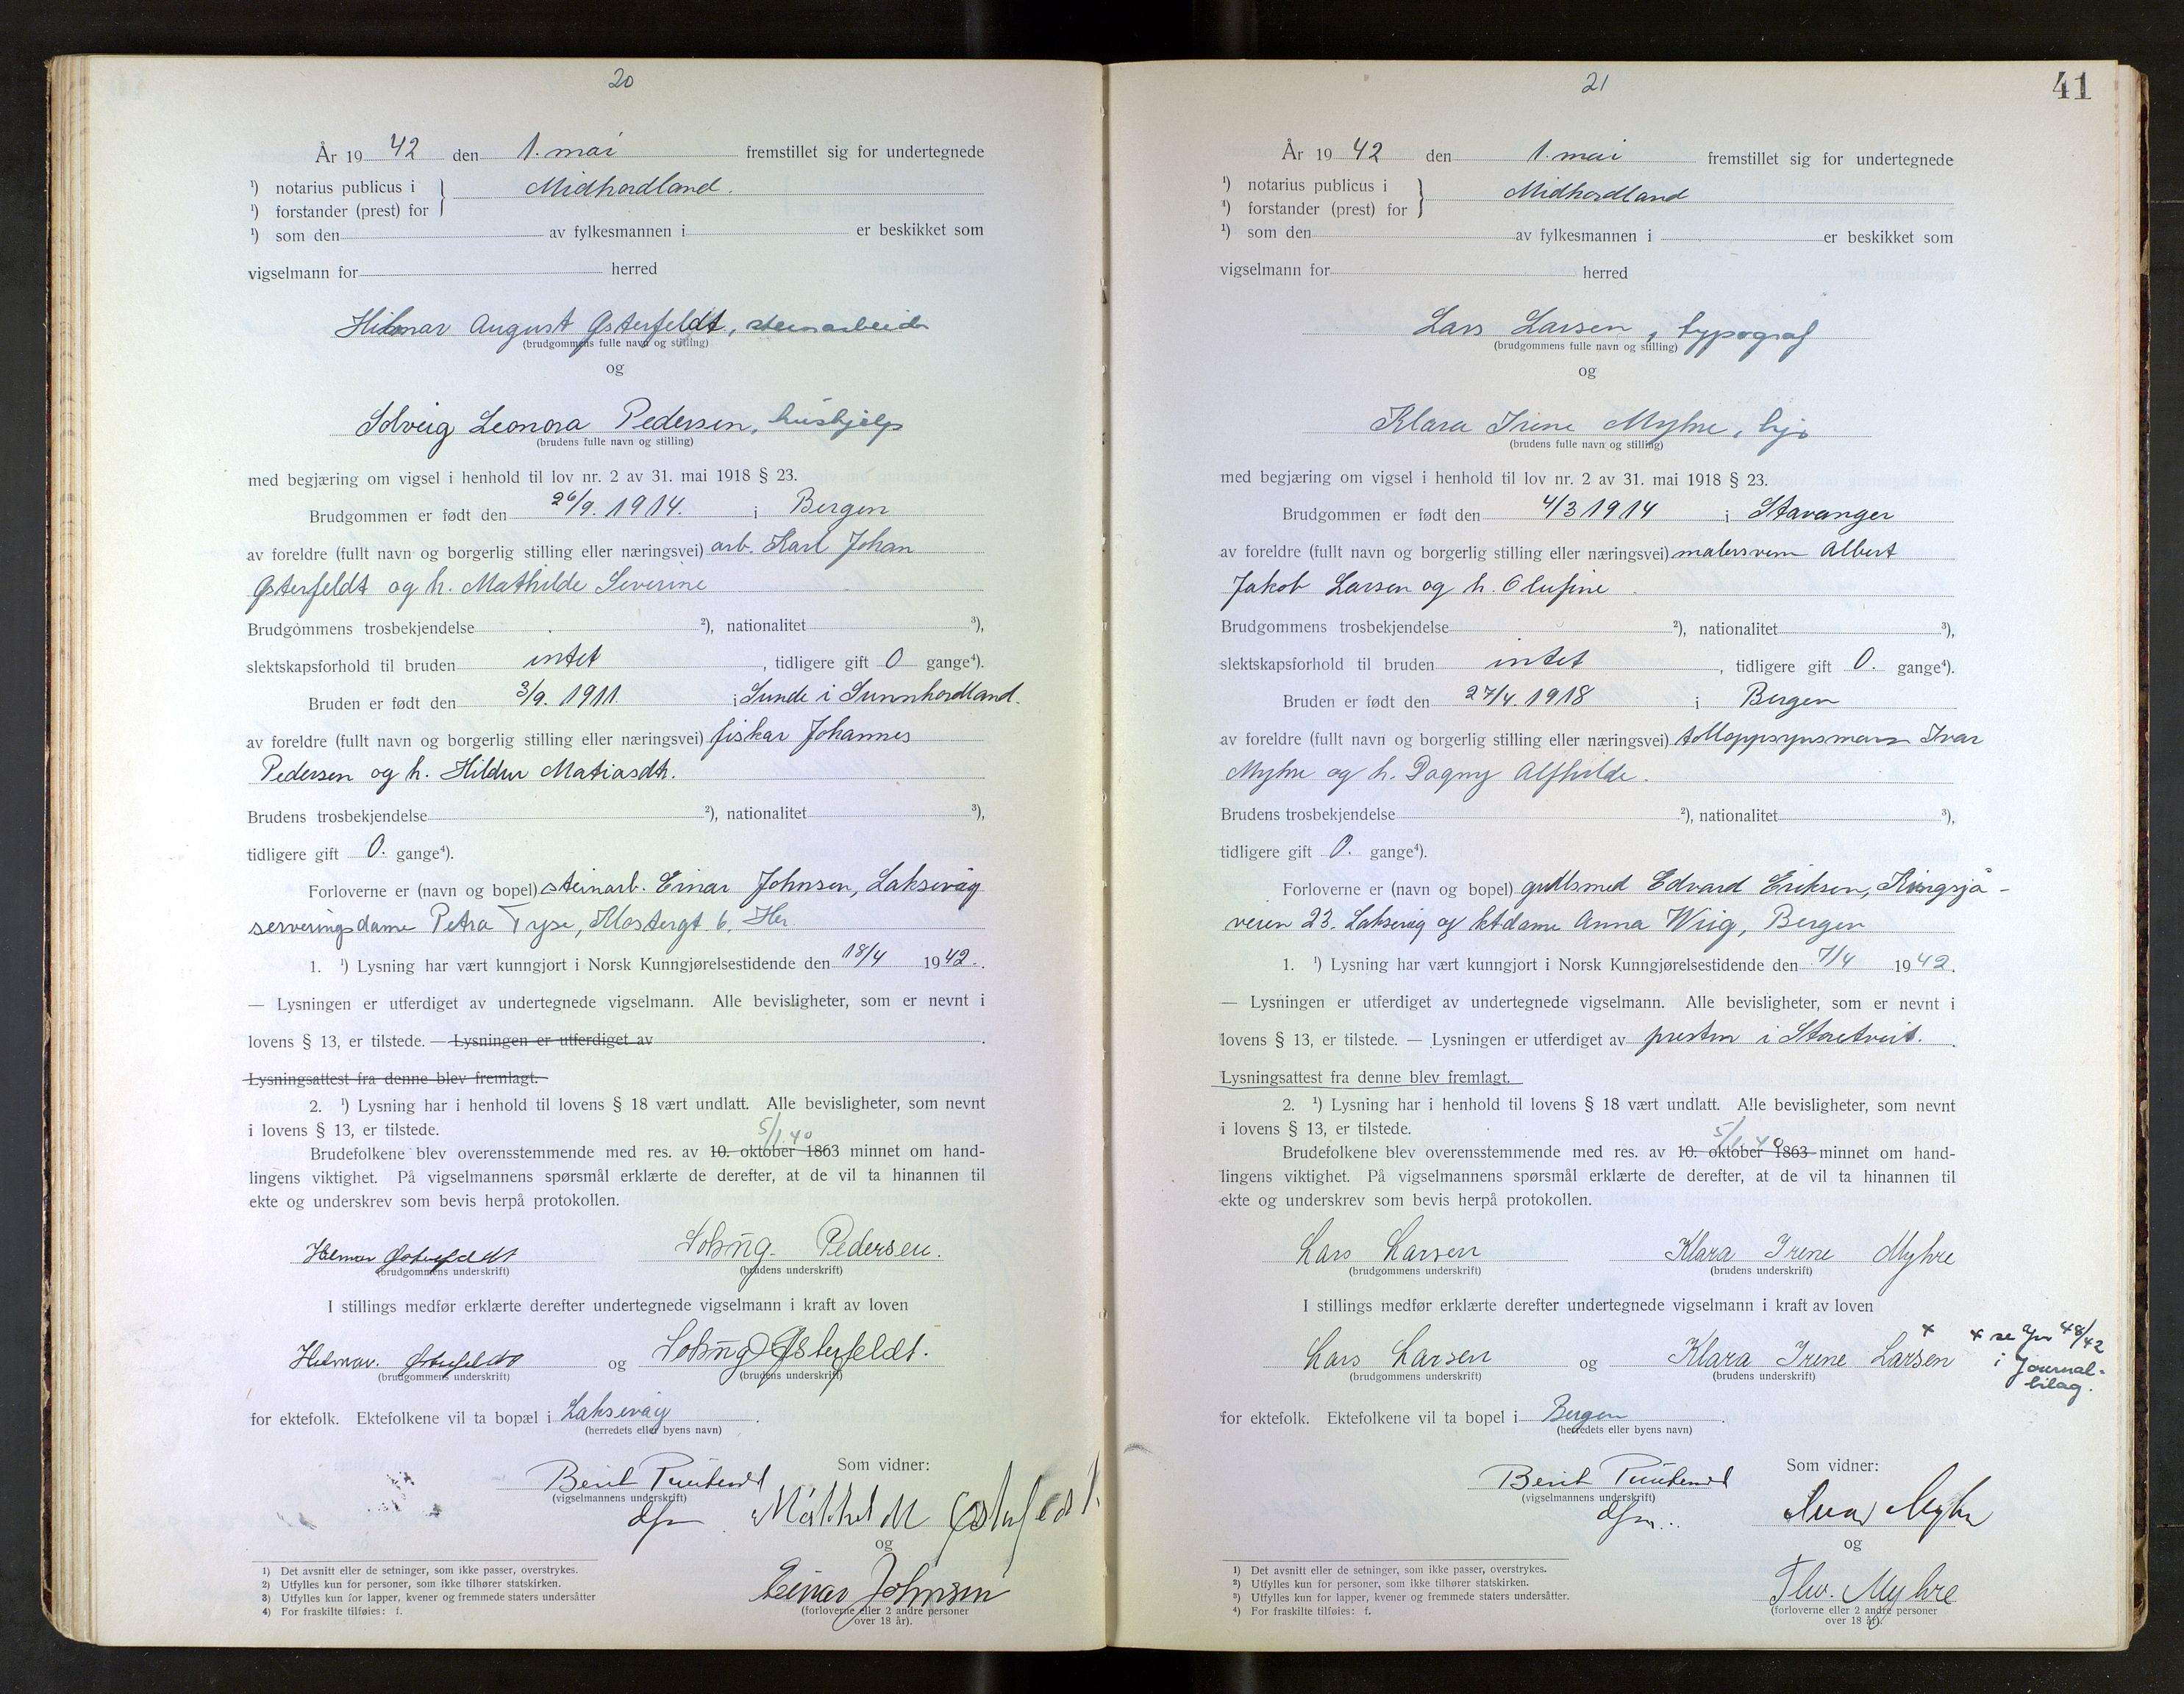 20
År 19 42 den 1. mai fremstillet sig for undertegnede
¹) notarius publicus i
Midhordland.
¹) forstander (prest) for
¹) som den av fylkesmannen i er beskikket som
vigselmann for herred
Hilmar August Østerfeldt, steinarbeider
(brudgommens fulle navn og stilling)
og
Solveig Leonora Pedersen, hushjelp
(brudens fulle navn og stilling)
med begjæring om vigsel i henhold til lov nr. 2 av 31. mai 1918 § 23.
Brudgommen er født den 26/9. 1914. i Bergen
av foreldre (fullt navn og borgerlig stilling eller næringsvei) arb. Karl Johan
Østerfeldt og h. Mathilde Severine
Brudgommens trosbekjendelse ²), nationalitet ³),
slektskapsforhold til bruden intet, tidligere gift 0 gange⁴).
Bruden er født den 3/9. 1911. i Sunde i Sunnhordland.
av foreldre (fullt navn og borgerlig stilling eller næringsvei) fiskar Johannes
Pedersen og h. Hildur Matiasdtr.
Brudens trosbekjendelse ²), nationalitet ³),
tidligere gift 0. gange⁴).
Forloverne er (navn og bopel) steinarb. Einar Johnsen, Laksevåg
serveringsdame Petra Tyse, Klostergt. 6. Her.
1. ¹) Lysning har vært kunngjort i Norsk Kunngjørelsestidende den 18/4 1942.
— Lysningen er utferdiget av undertegnede vigselmann. Alle bevisligheter, som er nevnt i
lovens § 13, er tilstede. — Lysningen er utferdiget av
Lysningsattest fra denne blev fremlagt.
2. ¹) Lysning har i henhold til lovens § 18 vært undlatt. Alle bevisligheter, som nevnt
i lovens § 13, er tilstede.
5/1.40
Brudefolkene blev overensstemmende med res. av 10. oktober 1863 minnet om hand-
lingens viktighet. På vigselmannens spørsmål erklærte de derefter, at de vil ta hinannen til
ekte og underskrev som bevis herpå protokollen.
Hilmar Østerfeldt Solveig Pedersen.
(brudgommens underskrift) (brudens underskrift)
I stillings medfør erklærte derefter undertegnede vigselmann i kraft av loven
Hilmar. Østerfeldt og Solveig Østerfeldt.
(brudgommens underskrift) (brudens underskrift)
for ektefolk. Ektefolkene vil ta bopæl i Laksevåg.
(herredets eller byens navn)
Som vidner:
Berit
(vigselmannens underskrift)
dfm. Østerfeldt
og
Einar Johnsen
(forloverne eller 2 andre personer
over 18 år).
1) Det avsnitt eller de setninger, som ikke passer, overstrykes.
2) Utfylles kun for personer, som ikke tilhører statskirken.
3) Utfylles kun for lapper, kvener og fremmede staters undersåtter
4) For fraskilte tilføies: f.
21
41
År 19 42 den 1. mai fremstillet sig for undertegnede
¹) notarius publicus i
Midhordland
¹) forstander (prest) for
¹) som den av fylkesmannen i er beskikket som
vigselmann for herred
Lars Larsen, typograf
(brudgommens fulle navn og stilling)
og
Klara Irene Myhre, hj.
(brudens fulle navn og stilling)
med begjæring om vigsel i henhold til lov nr. 2 av 31. mai 1918 § 23.
Brudgommen er født den 4/3 1914 i Stavanger
av foreldre (fullt navn og borgerlig stilling eller næringsvei) malersvenn Albert
Jakob Larsen og h. Olufine
Brudgommens trosbekjendelse ²), nationalitet ³),
slektskapsforhold til bruden intet, tidligere gift 0. gange⁴).
Bruden er født den 27/4. 1918 i Bergen
av foreldre (fullt navn og borgerlig stilling eller næringsvei) tolloppsynsmann Ivar
Myhre og h. Dagny Alfhilde.
Brudens trosbekjendelse ²), nationalitet ³),
tidligere gift 0. gange⁴).
Forloverne er (navn og bopel) gullsmed Edvard Eriksen, Kringsjå-
veien 23. Laksevåg og ktdame Anna Wiig, Bergen
1. ¹) Lysning har vært kunngjort i Norsk Kunngjørelsestidende den 7/4 1942.
— Lysningen er utferdiget av undertegnede vigselmann. Alle bevisligheter, som er nevnt i
lovens § 13, er tilstede. — Lysningen er utferdiget av presten i Storetveit.
Lysningsattest fra denne blev fremlagt.
2. ¹) Lysning har i henhold til lovens § 18 vært undlatt. Alle bevisligheter, som nevnt
i lovens § 13, er tilstede.
5/1.40
Brudefolkene blev overensstemmende med res. av 10. oktober 1863 minnet om hand-
lingens viktighet. På vigselmannens spørsmål erklærte de derefter, at de vil ta hinannen til
ekte og underskrev som bevis herpå protokollen.
Lars Larsen Klara Irene Myhre
(brudgommens underskrift) (brudens underskrift)
I stillings medfør erklærte derefter undertegnede vigselmann i kraft av loven
Lars Larsen og Klara Irene Larsen x
(brudgommens underskrift) (brudens underskrift)
x se jnr 48/42
i journal-
bilag.
for ektefolk. Ektefolkene vil ta bopel i Bergen.
(herredets eller byens navn)
Som vidner:
Berit
(vigselmannens underskrift)
dfm. Ivar Myhre
og
Thv. Myhre
(forloverne eller 2 andre personer
over 18 år).
1) Det avsnitt eller de setninger, som ikke passer, overstrykes.
2) Utfylles kun for personer, som ikke tilhører statskirken.
3) Utfylles kun for lapper, kvener og fremmede staters undersåtter.
4) For fraskilte tilføies: f.